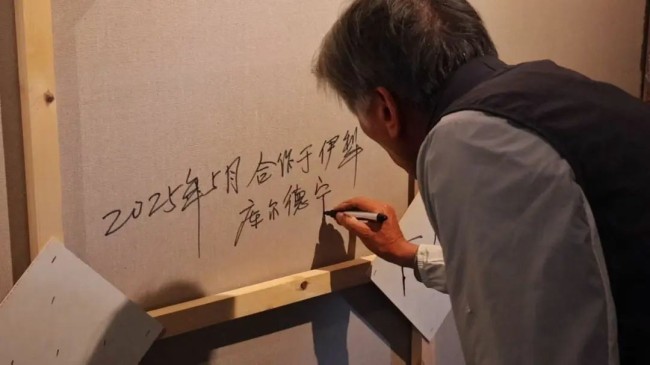 2025年5月合作于伊犁
库尔德宁